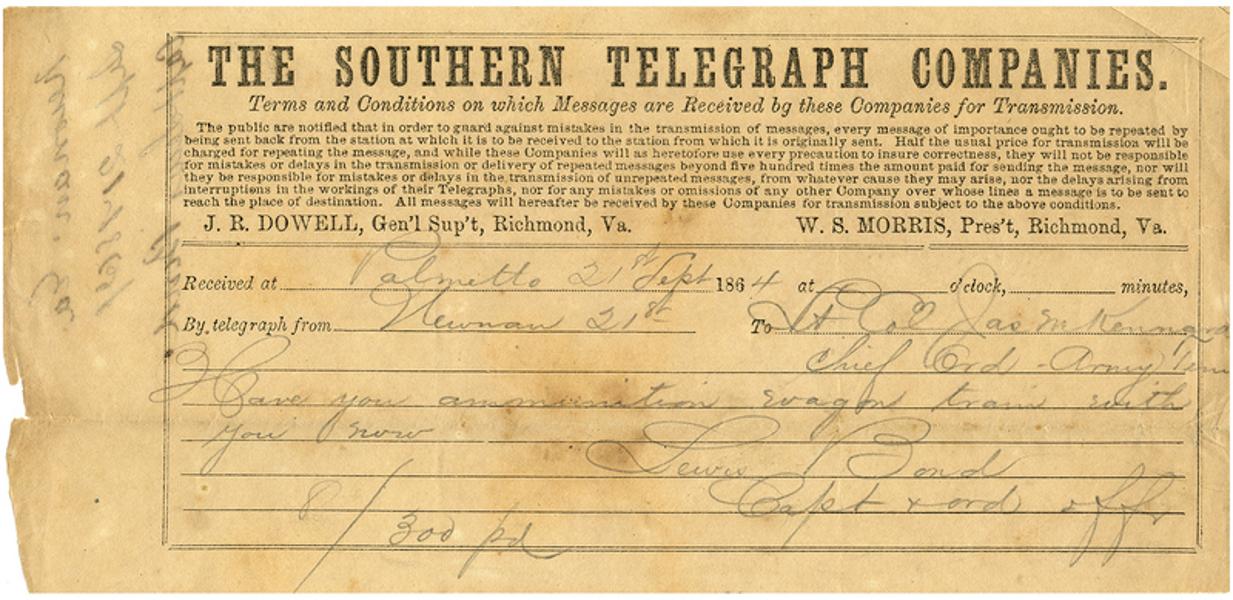 THE SOUTHERN TELEGRAPH COMPANIES.
Terms and Conditions on which Messages are Received by these Companies for Transmission.
The public are notified that in order to guard against mistakes in the transmission of messages, every message of importance ought to be repeated by
being sent back from the station at which it is to be received to the station from which it is originally sent. Half the usual price for transmission will be
charged for repeating the message, and while these Companies will as heretofore use every precaution to insure correctness, they will not be responsible
for mistakes or delays in the transmission or delivery of repeated messages beyond five hundred times the amount paid for sending the message, nor will
they be responsible for mistakes or delays in the transmission of unrepeated messages, from whatever cause they may arise, nor the delays arising from
interruptions in the workings of their Telegraphs, nor for any mistakes or omissions of any other Company over whose lines a message is to be sent to
reach the place of destination. All messages will hereafter be received by these Companies for transmission subject to the above conditions.
J. R. DOWELL, Gen'l Sup't, Richmond, Va. W. S. MORRIS, Pres't, Richmond, Va.
Received at Palmetto 21st Sept 1864 at o'clock, minutes,
By telegraph from Newnan 21st To Lt Col Jas M
Chief Ord - Army Tenn
Have you ammunition wagon train with
you now
Lewis Bond
Capt & ord offr
8 / 300 pd